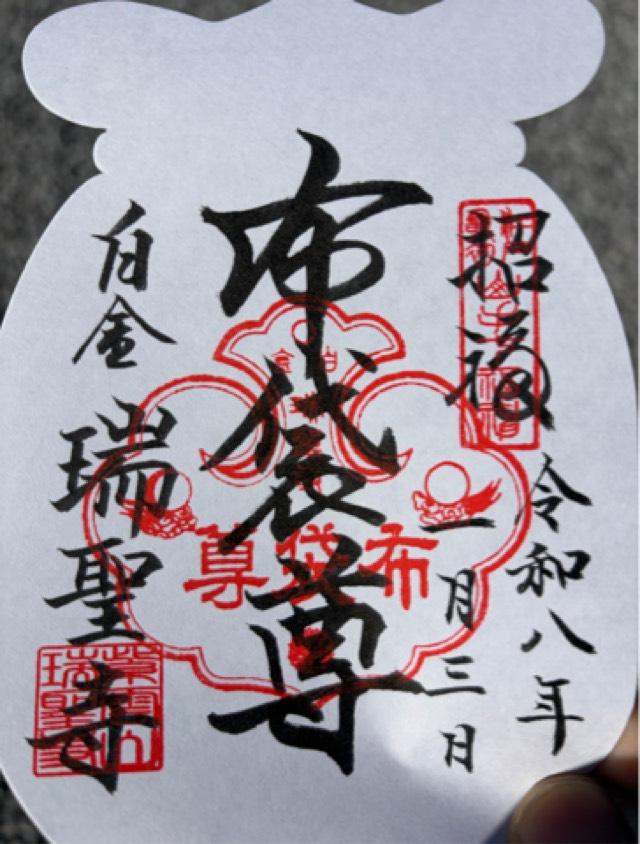 招福
令和八年
一月三日
布袋尊
白金
瑞聖寺
白金
布袋尊